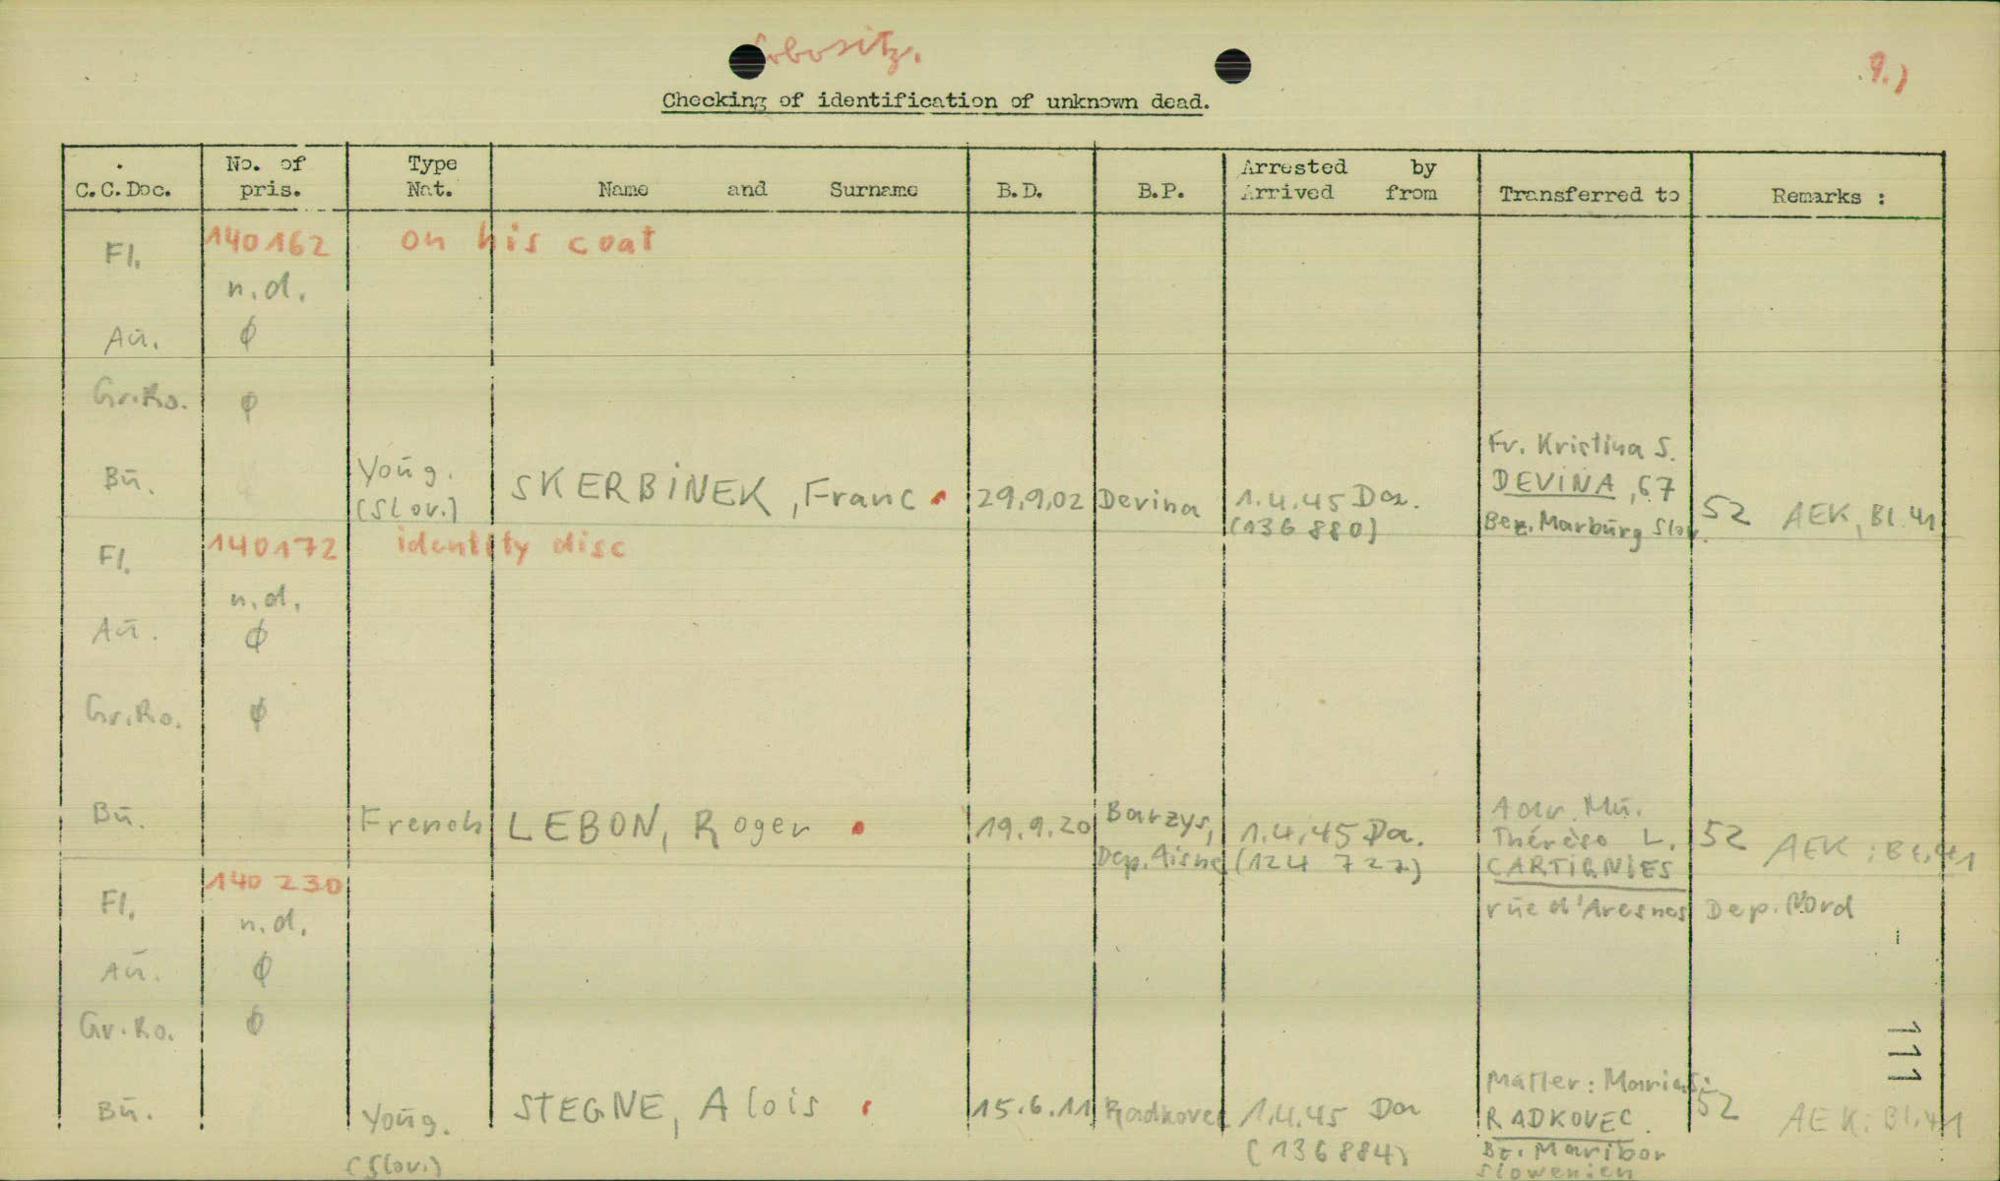 Lobositz.
9.)
Checking of identification of unknown dead.
C.C.Doc. No. of pris. Type Nat. Name and Surname B.D. B.P. Arrested by Arrived from Transferred to Remarks :
Fl. 140162 on his coat
n.d.
Aū. ϕ
Gr.Ro. ϕ
Fr. Kristina S.
Bū. Yoūg. SKERBINEK, Franc 29.9.02 Devina 1.4.45 Da. DEVINA, 67
(Slov.) (136 880) Bez. Marbūrg Slov. 52 AEK, Bl. 41
Fl. 140172 identity disc
n.d.
Aū. ϕ
Gr.Ro. ϕ
Bū. French LEBON, Roger 19.9.20 Barzys, 1.4.45 Da. Adr. Mū. 52 AEK: Bl. 41
Dep. Aisne (124 727) Thérèse L.
CARTIGNIES
Fl. 140 230 rūe d'Avesnes Dep. Nord
n.d.
Aū. ϕ
Gr.Ro. ϕ
111
Bū. Yoūg. STEGNE, Alois 15.6.11 Radkovec 1.4.45 Da Mūtter: Maria S. 52 AEK: Bl. 41
(Slov.) (136884) RADKOVEC.
Bz. Maribor
Slowenien